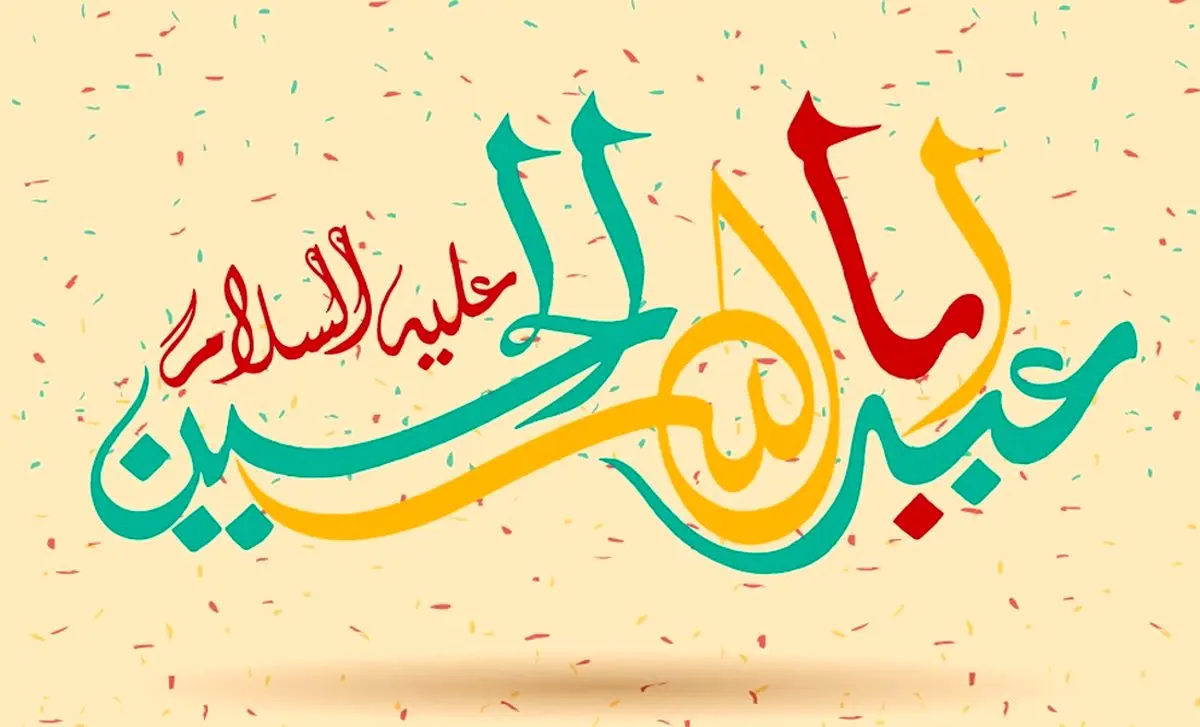 ابا عبدالله الحسين عليه السلام